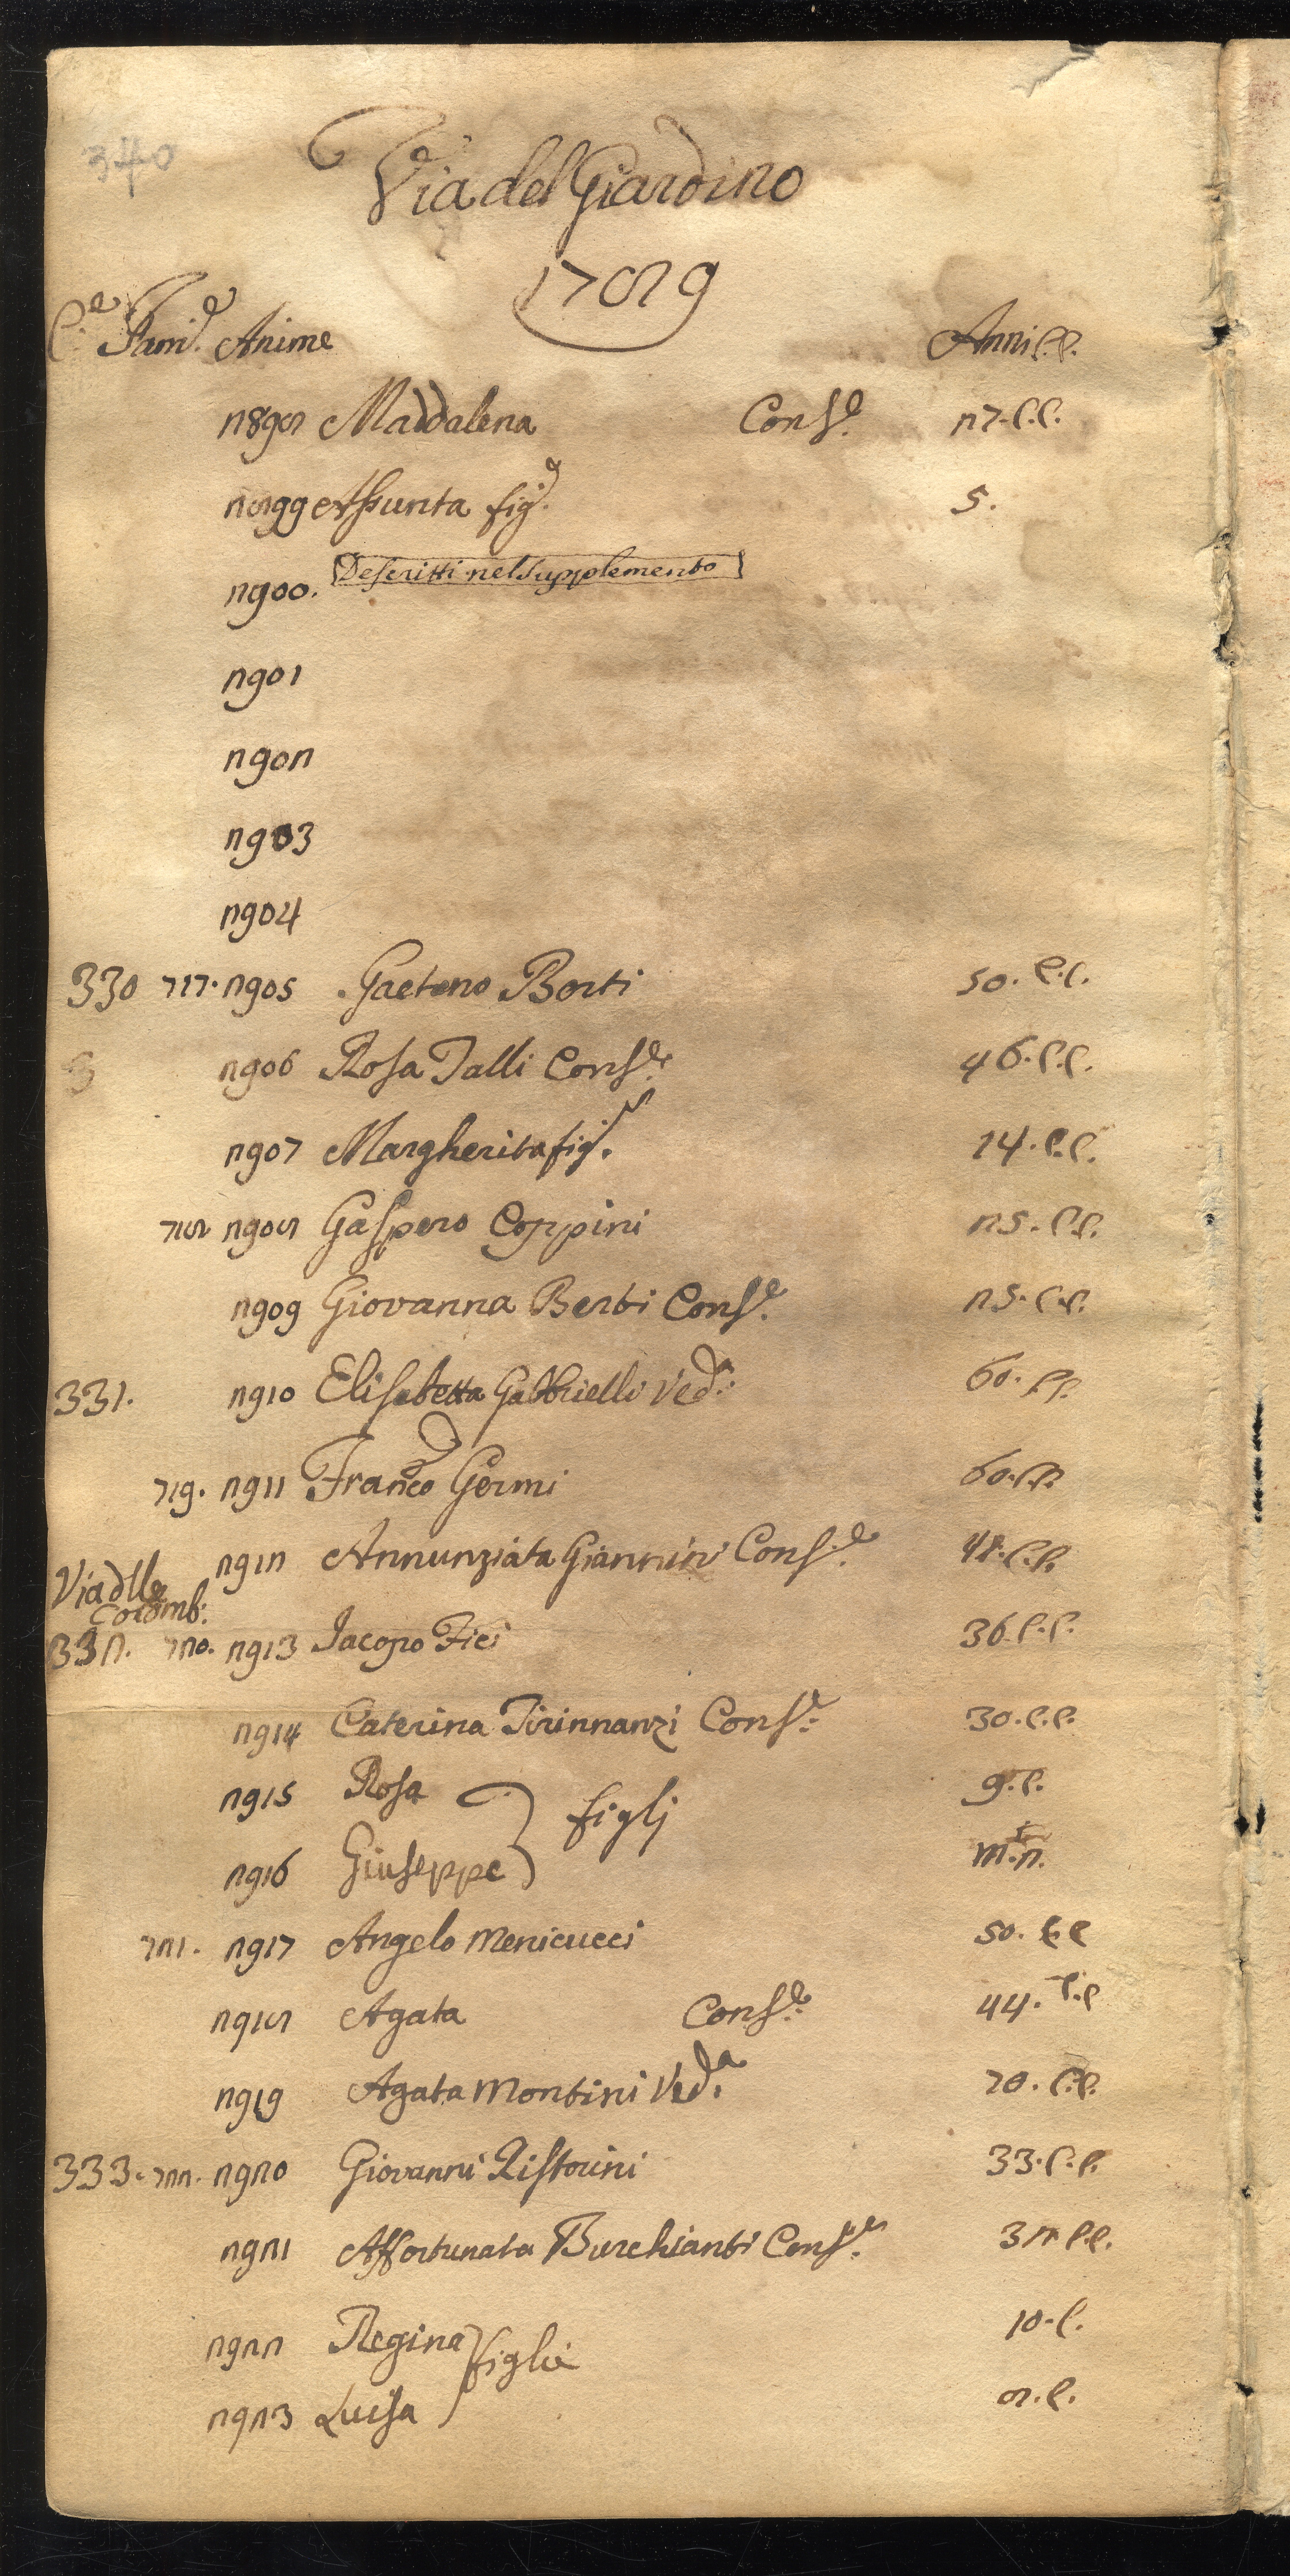 340
Via del Giardino
1789
C.e Fam.e Anime Anni C.C.
2898 Maddalena Cons.e 27. C.C.
2899 Assunta fig.a 5.
2900. Descritti nel Supplemento
2901
2902
2903
2904
330 717. 2905 Gaetano Borti 50. C.C.
3 2906 Rosa Talli Cons.e 46. C.C.
2907 Margherita fig.a 14. C.C.
718 2908 Gaspero Coppini 25. C.C.
2909 Giovanna Berti Cons.e 25. C.C.
331. 2910 Elisabetta Gabbrielli Ved.a 60. C.C.
719. 2911 Franco Germi 60. C.C.
2912 Annunziata Giannini Cons.e 48. C.C.
Via dlle
Colomb:
332. 720. 2913 Jacopo Fici 36. C.C.
2914 Caterina Tirinnanzi Cons.e 30. C.C.
2915 Rosa figlj 9. C.
2916 Giuseppe m. 2.
721. 2917 Angelo Menicucci 50. C.C
2918 Agata Cons.e 44. C.C
2919 Agata Montini Ved.a 70. C.C.
333. 722. 2920 Giovanni Ristorini 33. C.C.
2921 Affortunata Burchianti Cons.e 32 C.C.
2922 Regina figlie 10. C.
2923 Luisa 8. C.